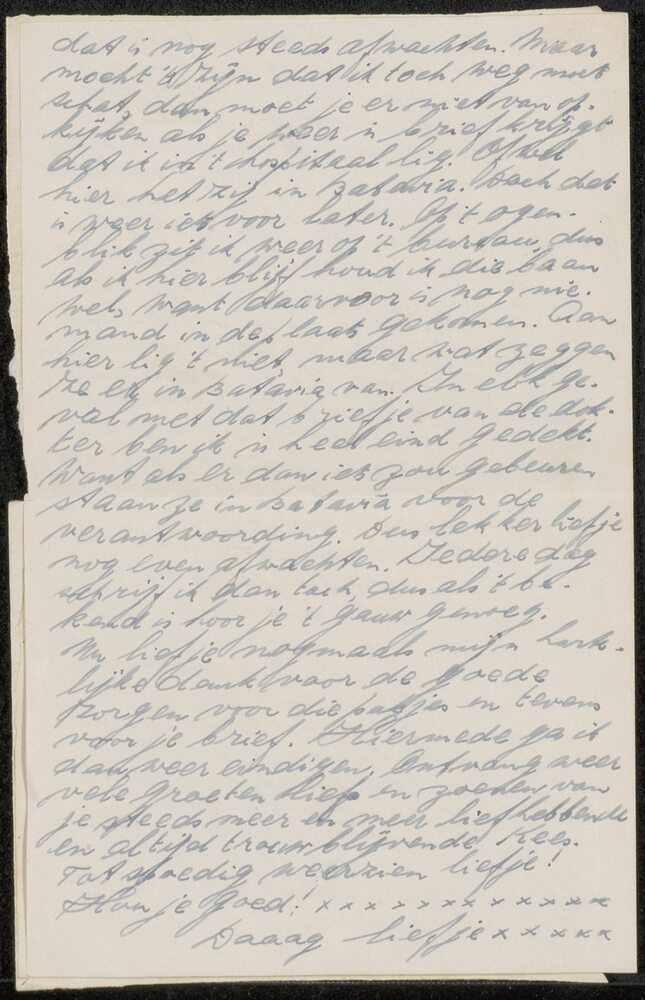 dat is nog steeds afwachten. Maar
mocht 't zijn dat ik toch weg moet
schat, dan moet je er niet van op-
kijken als je weer 'n brief krijgt
dat ik in 't hospitaal lig. Ofwel
hier hetzij in Batavia. Doch dat
is weer iets voor later. Op 't ogen-
blik zit ik weer op 't bureau, dus
als ik hier blijf houd ik die baan
wel, want daarvoor is nog nie-
mand in de plaats gekomen. Aan
hier lig 't niet, maar wat zeggen
ze er in Batavia van. In elk ge-
val met dat briefje van de dok-
ter ben ik 'n heel eind gedekt.
Want als er dan iets zou gebeuren
staan ze in Batavia voor de
verantwoording. Dus lekker liefje
nog even afwachten. Iedere dag
schrijf ik dan toch, dus als 't be-
kend is hoor je 't gauw genoeg.
Nu liefje nogmaals mijn harte-
lijke dank voor de goede
zorgen voor die pakjes en tevens
voor je brief. Hiermede ga ik
dan weer eindigen. Ontvang weer
vele groeten liefje en zoenen van
je steeds meer en meer liefhebbende
en altijd trouwblijvende Kees.
Tot spoedig weerzien liefje!
Hou je goed! x x x x x x x x x x x x
Daaag liefje x x x x x